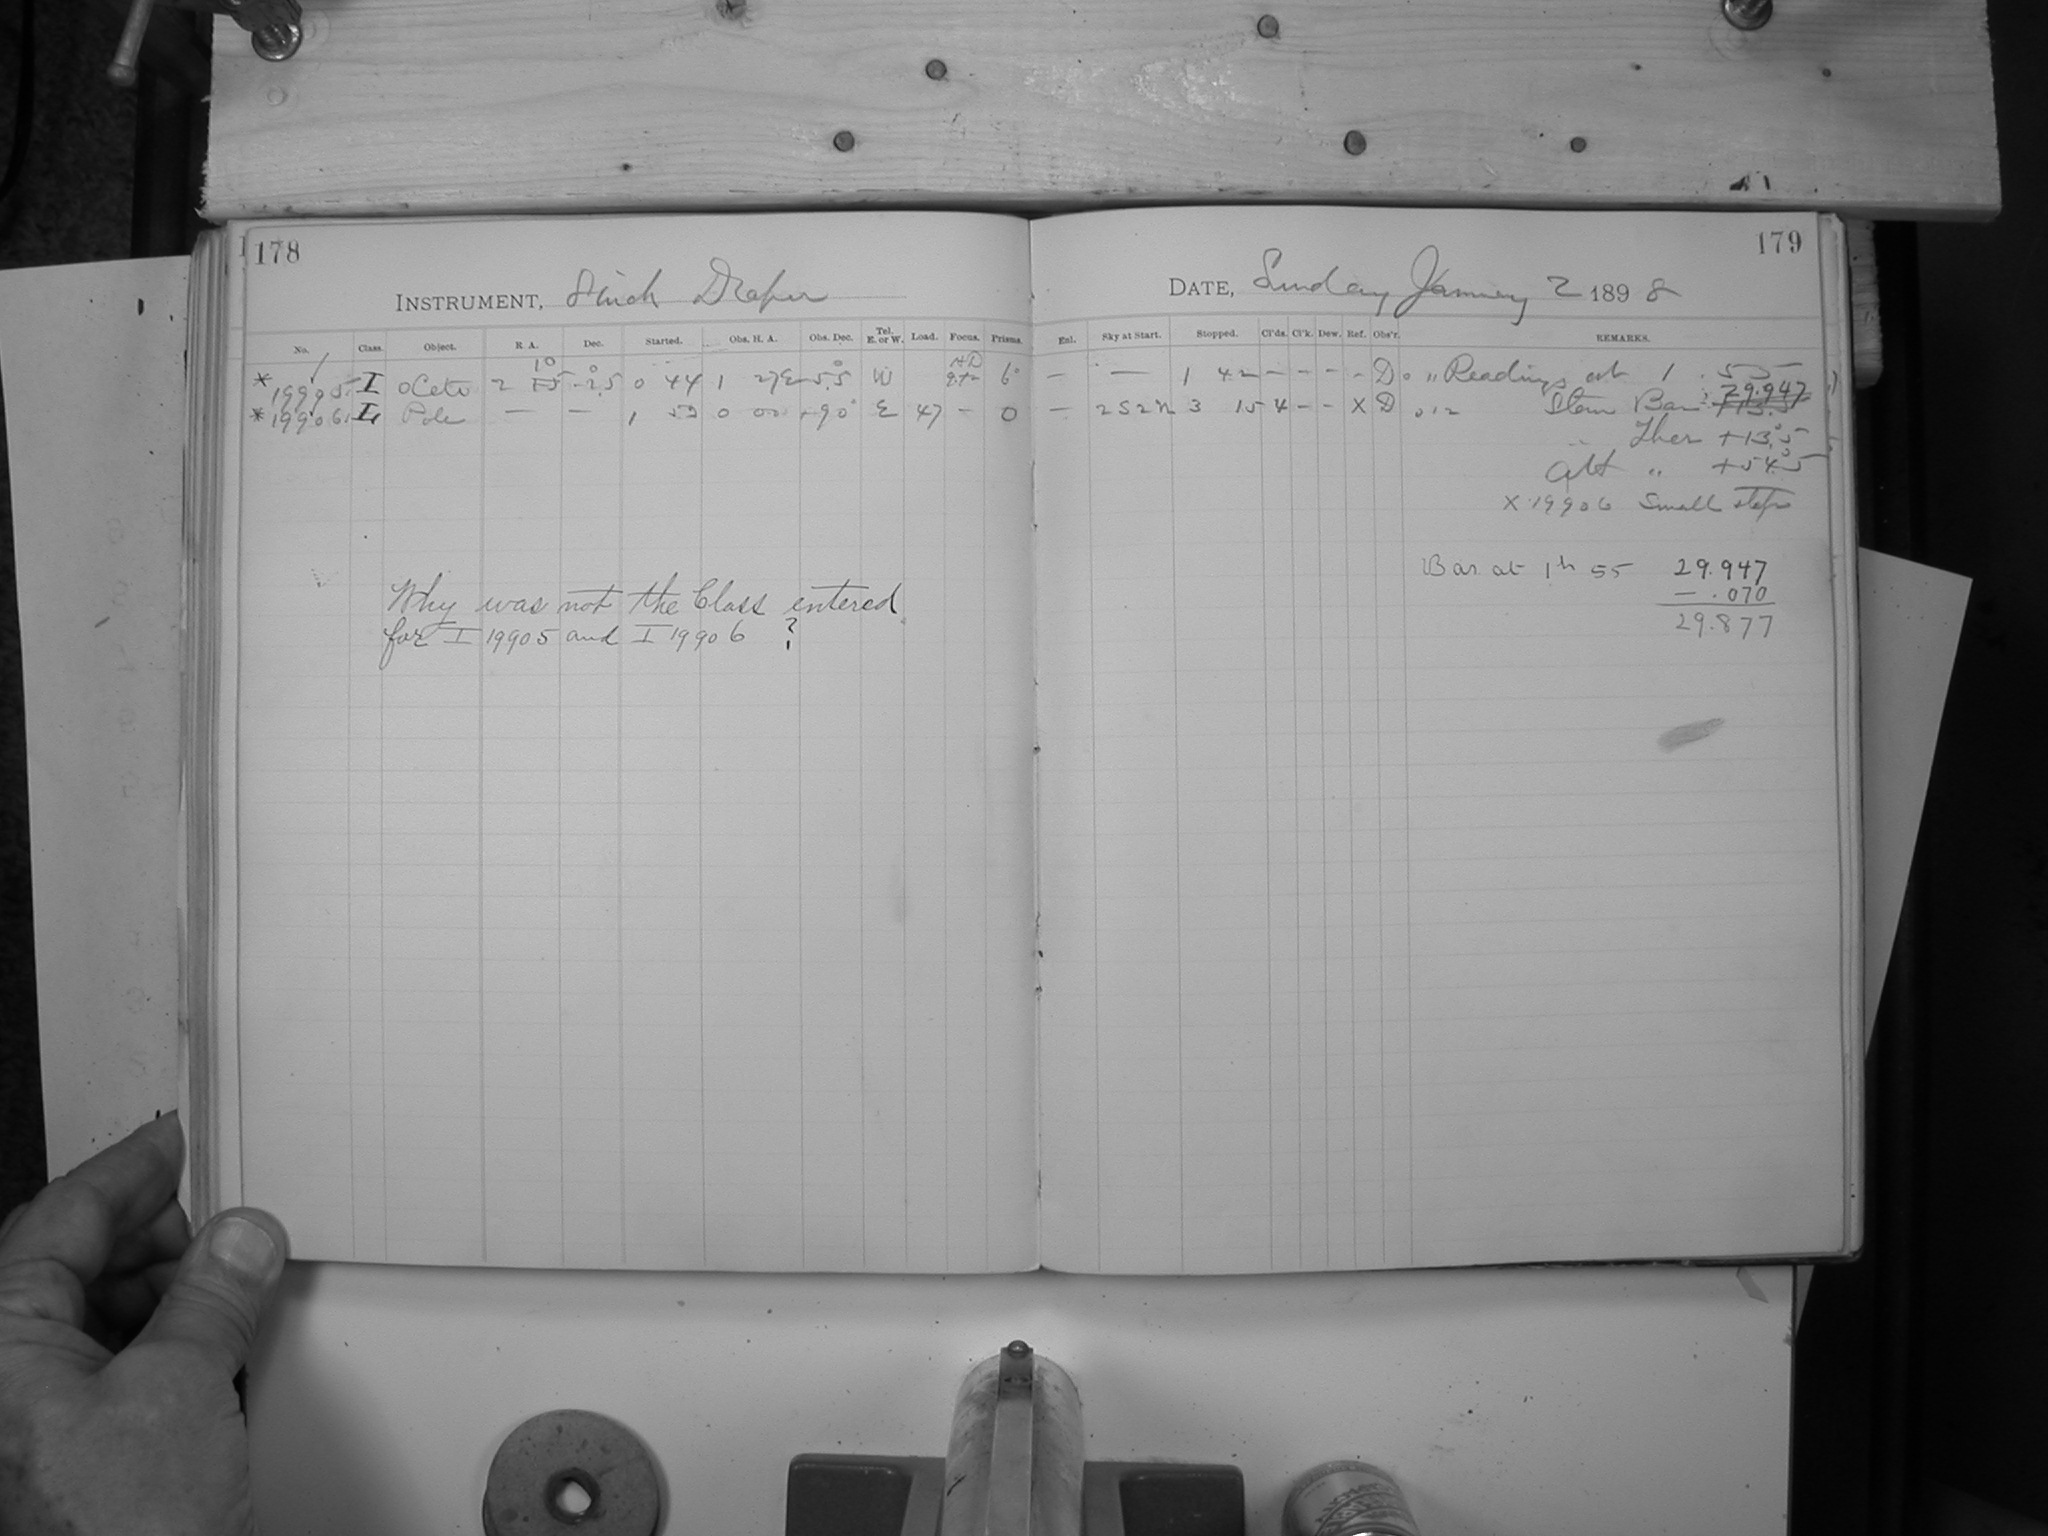 178
INSTRUMENT, 8 inch Draper
No. Class. Object. R. A. Dec. Started. Obs. H. A. Obs. Dec. Tel. E. or W. Load. Focus. Prisms.
10
* 19905 I o Ceti 2 15 -2.5 0 44 1 27E -5.5 W
* 19906 Pole — — 1 53 0 00 +90° E 47 - 0
Why was not the Class entered
for I 19905 and I 19906 ?
179
DATE, Sunday January 2 1898
Enl. Sky at Start. Stopped. Cl'ds. Cl'k. Dew. Ref. Obs'r. REMARKS.
— — 1 42 - - - - D Readings at 1 . 55
29.947
— 2S2N 3 15 4 - - X D .012 Bar
Ther +13.5
Att " +54.5
X 19906 Small steps
Bar at 1h 55 29.947
- .070
29.877